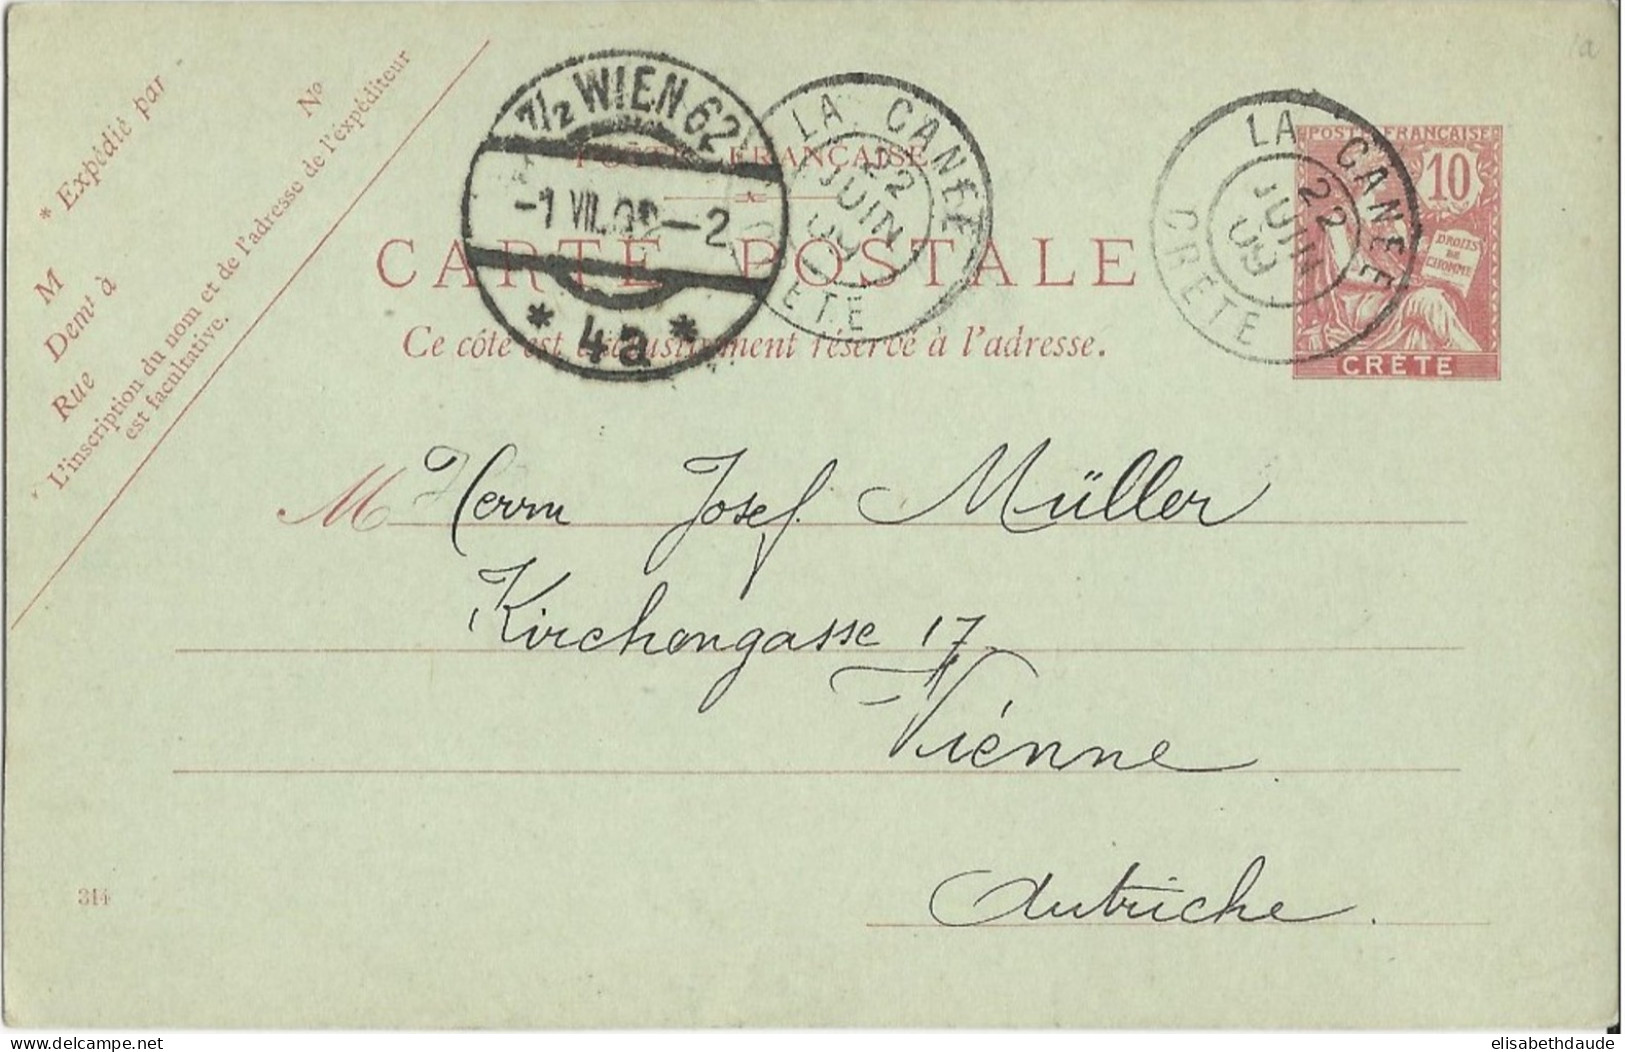 * Expédié par
Nº
M
Demt à
Rue
L'inscription du nom et de l'adresse de l'expéditeur
est facultative.
7½ WIEN 62
-1 VII. 09 -2
* 4a *
LA CANÉE
22
JUIN
09
CRÈTE
LA CANÉE
22
JUIN
09
CRÈTE
POSTE FRANÇAISE
10
DROITS
DE
L'HOMME
CRÈTE
POSTE FRANÇAISE
CARTE POSTALE
Ce côté est exclusivement réservé à l'adresse.
M Herrn Josef Müller
Kirchengasse 17
Viénne
Autriche.
314
delcampe.net
elisabethdaude